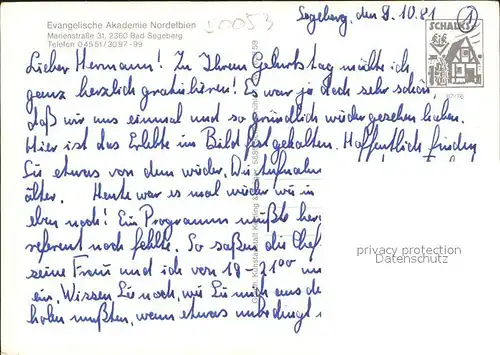 Evangelische Akademie Nordelbien
Marienstraße 31, 2360 Bad Segeberg
Telefon 04551/3097-99
50053
Segeberg, den 9.10.81
1
Lieber Hermann! Zu Ihrem Geburtstag möchte ich
ganz herzlich gratulieren! Es war ja doch sehr schön,
daß wir uns einmal und so gründlich wiedergesehen haben.
Hier ist das Erlebte im Bild festgehalten. Hoffentlich finden
Sie etwas von dem wieder. Die
älter. Heute war es mal wieder wie in
eben noch! Ein Programm mußte
referent noch fehlte. So saßen die Chef
seine Frau und ich von 18-21 00
ein. Wissen Sie noch, wie Sie mich aus
holen mußten, wenn etwas unbedingt
privacy protection
Datenschutz